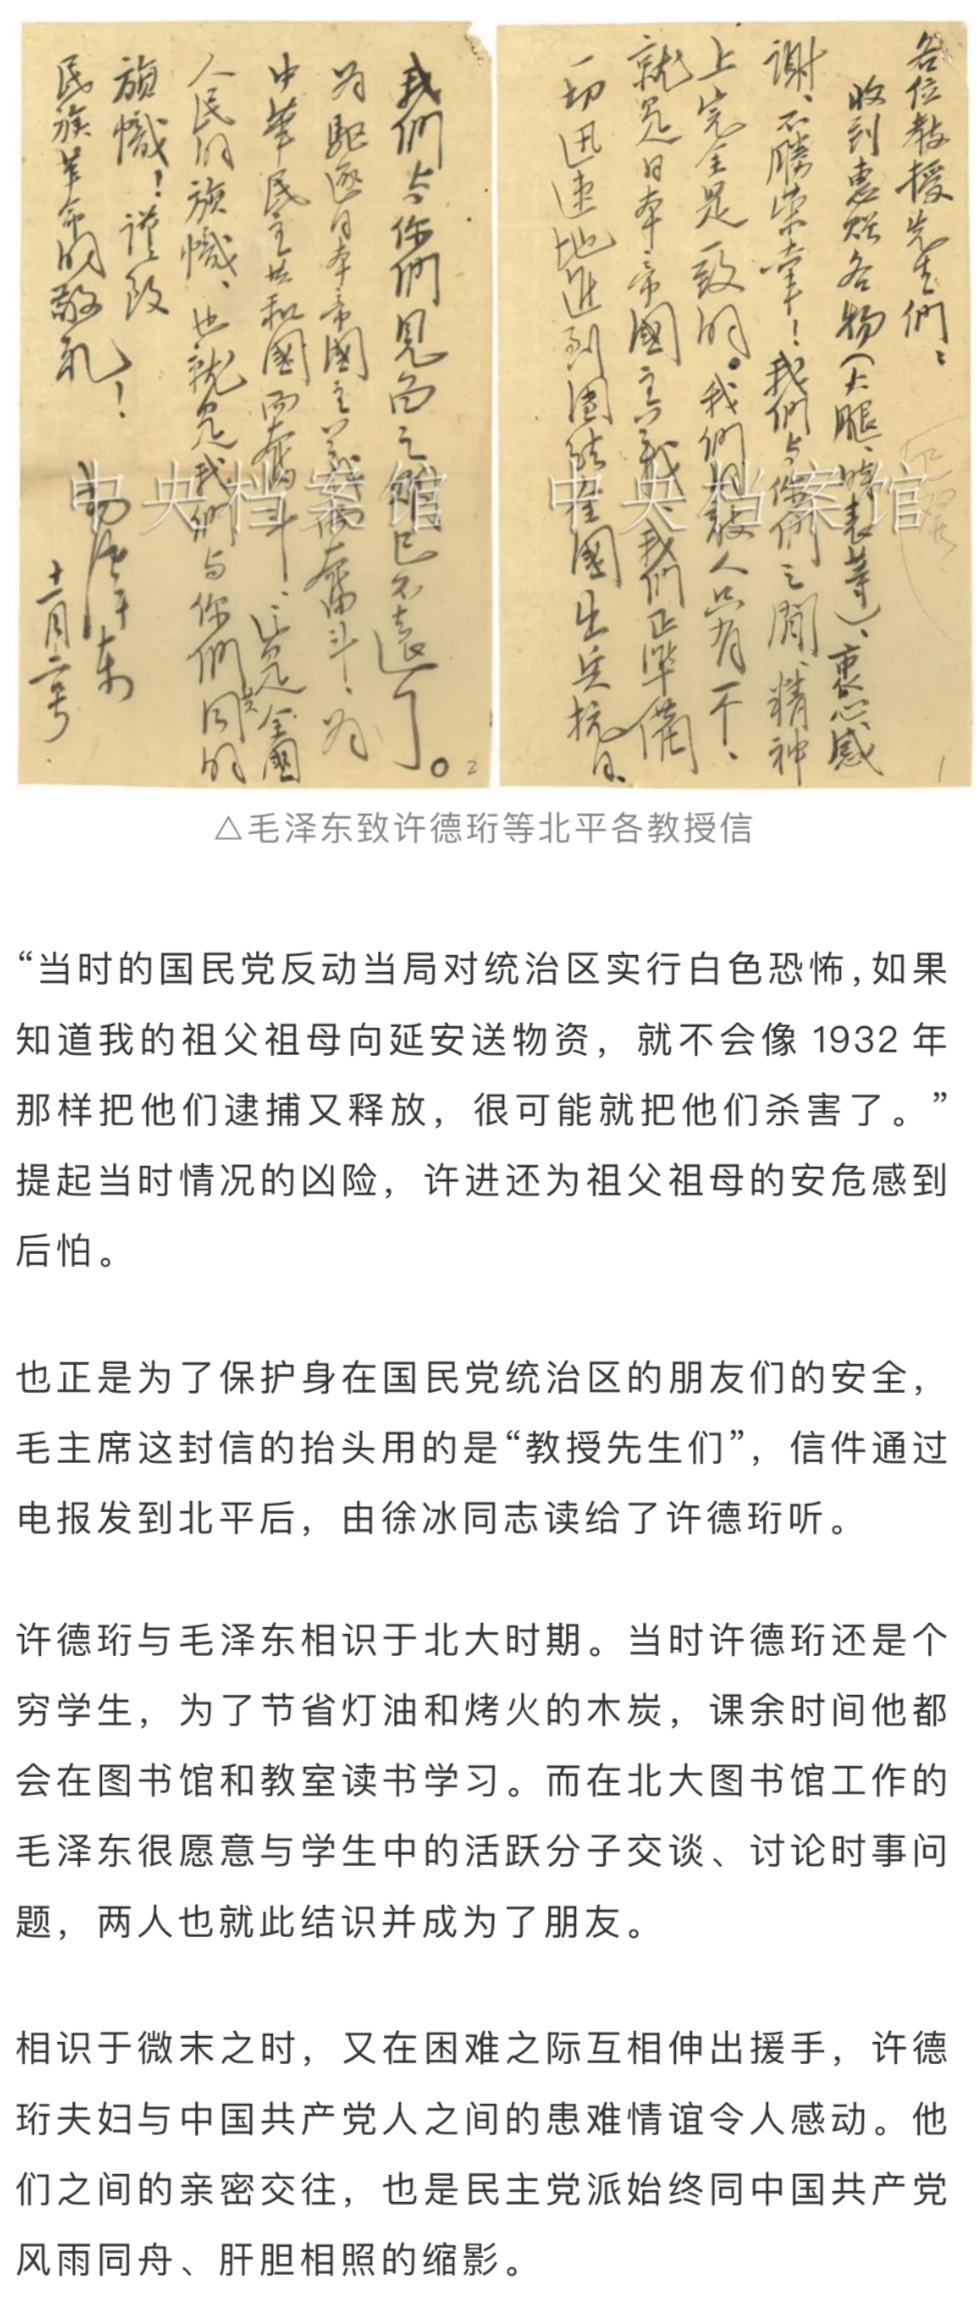 各位教授先生們：
收到惠贈各物（火腿、時表等），衷心感
謝，不勝榮幸！我們与你們之間，精神
上完全是一致的。我們的敵人只有一个，
就是日本帝國主義，我們正準備
一切迅速地進到團結全國出兵抗日，
1
我們与你們見面之期已不遠了。
为驅逐日本帝國主義而奮斗，为
中華民主共和國而奮斗，这是全國
人民的旗幟，也就是我們与你們共同的
旗幟！謹致
民族革命的敬礼！
毛澤東
十一月二号
2
中央档案馆
中央档案馆
△毛泽东致许德珩等北平各教授信
“当时的国民党反动当局对统治区实行白色恐怖,如果
知道我的祖父祖母向延安送物资，就不会像 1932 年
那样把他们逮捕又释放，很可能就把他们杀害了。”
提起当时情况的凶险，许进还为祖父祖母的安危感到
后怕。
也正是为了保护身在国民党统治区的朋友们的安全，
毛主席这封信的抬头用的是“教授先生们”，信件通过
电报发到北平后，由徐冰同志读给了许德珩听。
许德珩与毛泽东相识于北大时期。当时许德珩还是个
穷学生，为了节省灯油和烤火的木炭，课余时间他都
会在图书馆和教室读书学习。而在北大图书馆工作的
毛泽东很愿意与学生中的活跃分子交谈、讨论时事问
题，两人也就此结识并成为了朋友。
相识于微末之时，又在困难之际互相伸出援手，许德
珩夫妇与中国共产党人之间的患难情谊令人感动。他
们之间的亲密交往，也是民主党派始终同中国共产党
风雨同舟、肝胆相照的缩影。